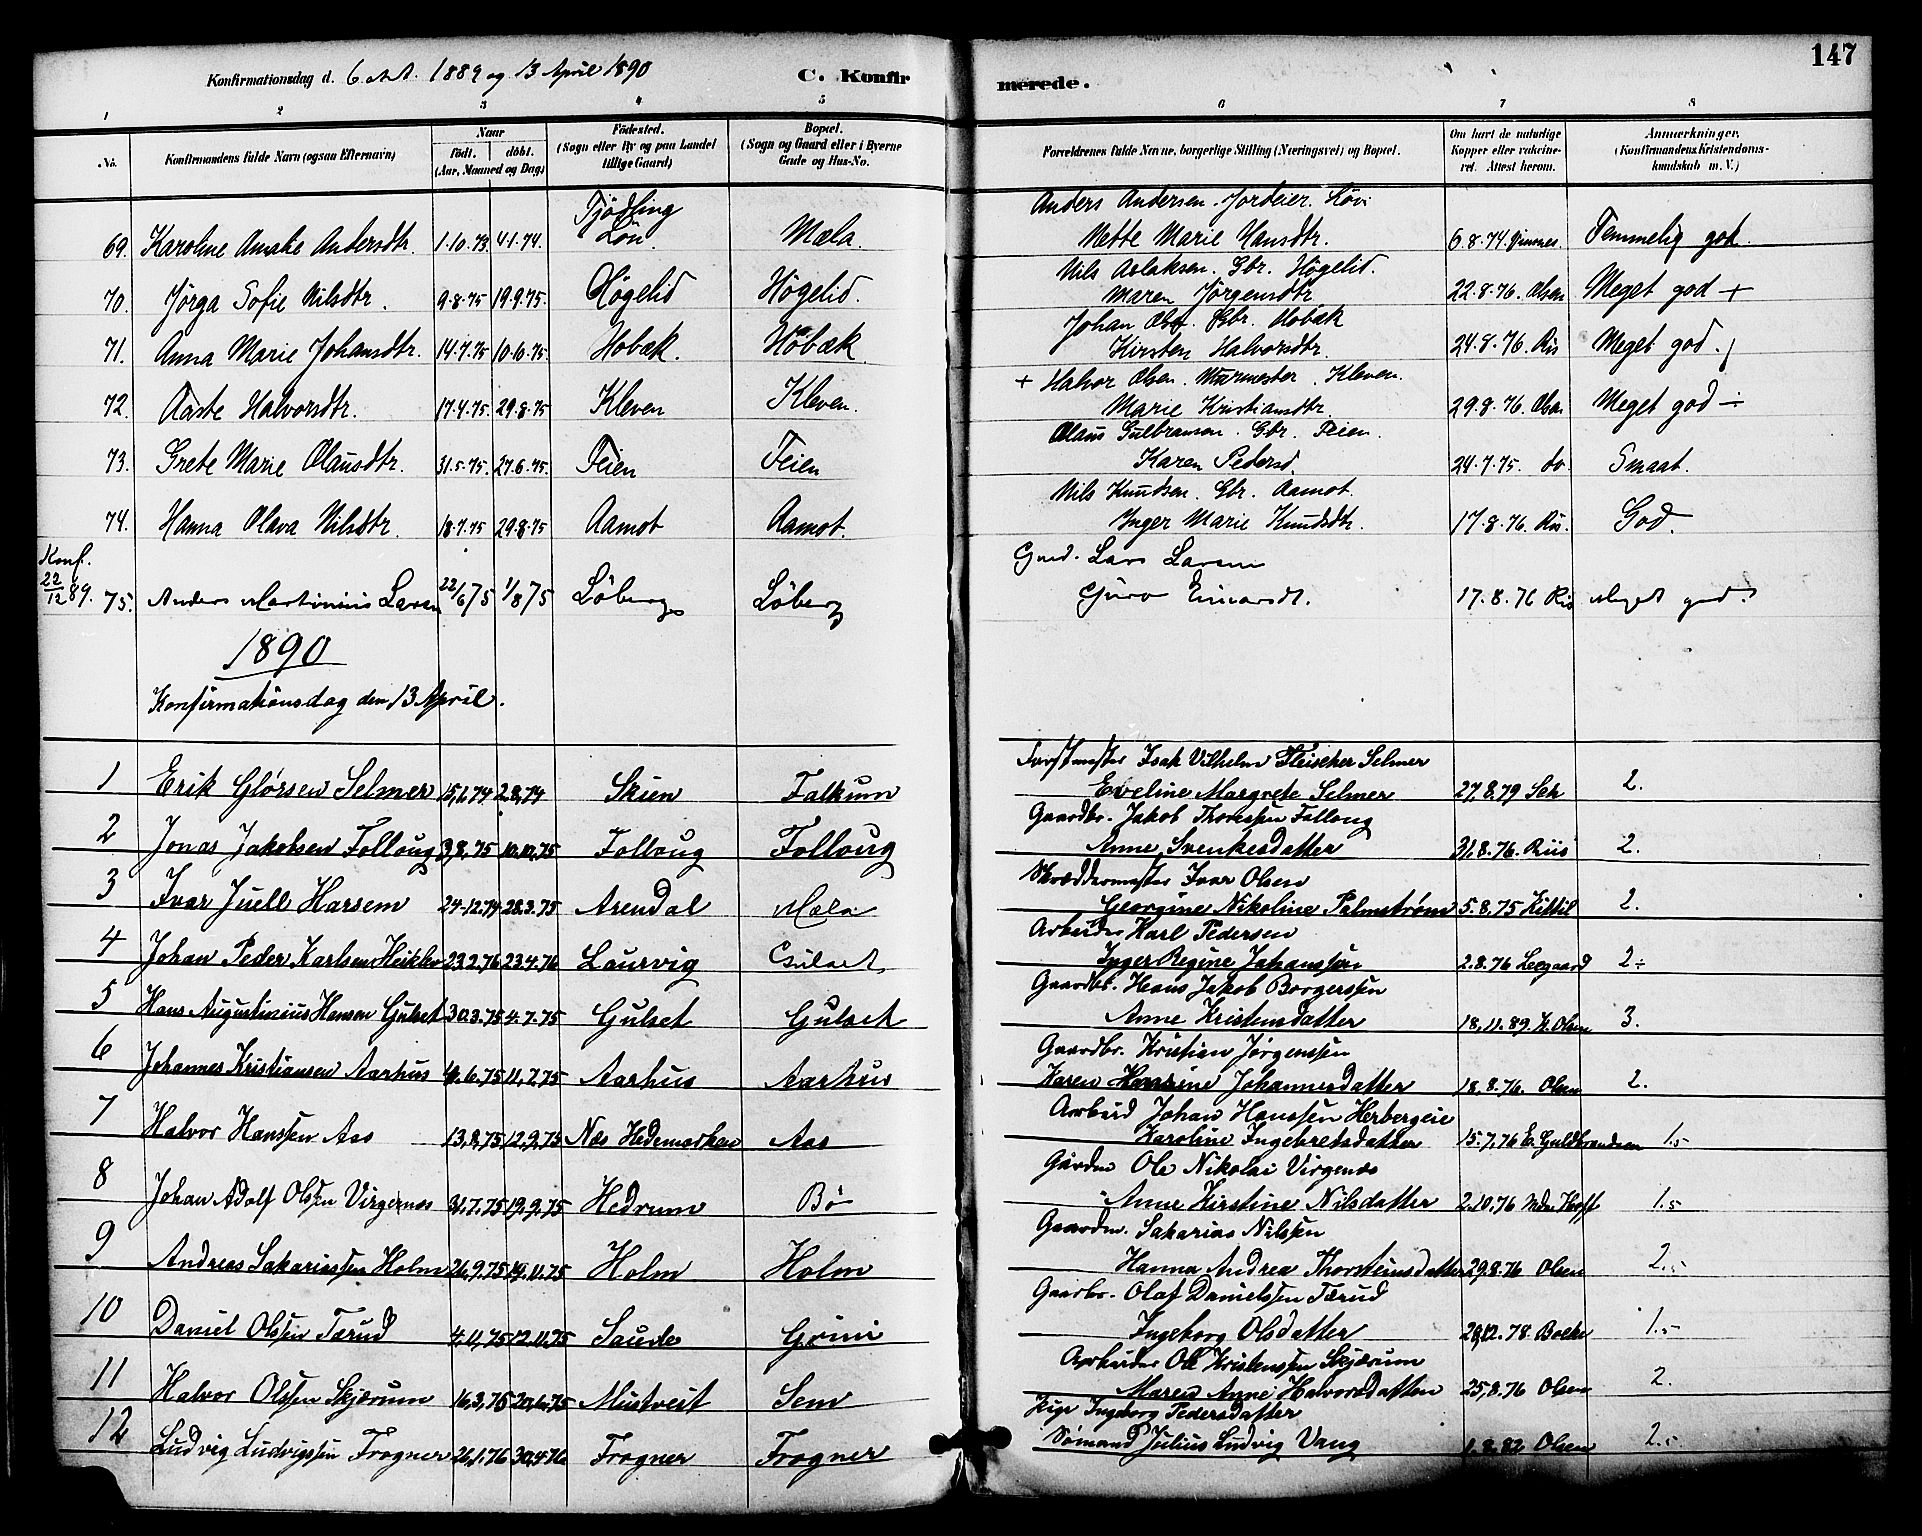 147
Konfirmationsdag d. 6 Okt. 1889 og 13 April 1890 C. Konfirmerede.
1 2 3 4 5 6 7 8
No. Konfirmandens fulde Navn (ogsaa Efternavn) Naar født. døbt. (Aar, Maaned og Dag) Fødested. (Sogn eller By og paa Landet tillige Gaard) Bopæl. (Sogn og Gaard eller i Byerne Gade og Hus-No. Forældrenes fulde Navne, borgerlige Stilling (Næringsvei) og Bopæl. Om havt de naturlige Kopper eller vakcineret. Attest herom. Anmærkninger. (Konfirmandens Kristendomskundskab m. V.)
Tjødling Anders Andersen. Jordeier. Løvi
69. Karoline Amalie Andersdtr. 1.10.73. 4.1.74. Løu. Mæla. Mette Marie Hansdtr. 6.8.74. Temmelig god.
Nils Aslaksen. Gbr. Høgelid.
70. Jørga Sofie Nilsdtr. 9.8.75 19.9.75. Høgelid Høgelid. Maren Jørgensdtr. 22.8.76. Olsen Meget god +
Johan Gbr. Hobæk
71. Anna Marie Johansdtr. 14.7.75 10.10.75. Hobæk. Hobæk Kirsten Halvorsdtr. 24.8.76. Ris Meget god.
+ Halvor Olsen. Murmester. Kleven.
72. Aaste Halvorsdtr. 17.4.75. 29.8.75 Kleven Kleven. Marie Kristiansdtr. 29.8.76. Olsen Meget god ÷
Olaus Gulbransen. Gbr. Feien.
73. Grete Marie Olausdtr. 31.5.75. 27.6.75. Feien Feien Karen Pedersd. 24.7.75. do. Smaat.
Nils Knudsen. Gbr. Aamot.
74. Hanna Olava Nilsdtr. 18.7.75 29.8.75 Aamot Aamot. Inger Marie Knudsdtr. 17.8.76. Ris. God.
Konf. 22/12 89. Gmd. Lars Larsen
75. Anders Martinius Larsen 22/6 75 1/8 75 Løberg Løberg Guro Einarsdt. 17.8.76 Ris Meget god.
1890
Konfirmationsdag den 13 April.
Forstmester Isak Vilhelm Fleischer Selmer
1 Erik Glørsen Selmer 15,6.74 2.8,74 Skien Falkum Eveline Margrete Selmer 27,8.79 Sch 2.
Gaardbr. Jakob Thomassen Follaug
2 Jonas Jakobsen Follaug 3,8,75 10.10.75 Follaug Follaug Anne Svenkesdatter 31,8.76. Riis 2.
Skræddermester Ivar Olsen
3 Ivar Juell Harsem 24-12.74 28.3.75 Arendal Mæla Georgine Nikoline Palmstrøm 5.8.75 Kittil 2.
Arbeider Karl Pedersen
4 Johan Peder Karlsen 23.2.76 23.4.76 Laurvig Gulset Inger Regine Johanssen 2.8.76 Leegaard 2÷
Gaardbr. Hans Jakob Borgerssen
5 Hans Augustinius Hansen Gulset 30.3.75 4.7.75 Gulset Gulset Anne Kristensdatter 18,11.89. H. Olsen 3.
Gaardbr. Kristian Jørgenssen
6 Johannes Kristiansen Aarhus 4.6.75 11,7.75 Aarhus Aarhus Karen Hansine Johannesdatter 18,8.76. Olsen 2.
Arbeid Johan Hanssen Herbergeie
7 Halvor Hanssen Aas 13,8,75 12,9,75 Næs Hedemarken Aas Karoline Ingebretsdatter 15.7,76 E. Guldbrandsen 1.5
Gårdm Ole Nikolai Virgenæs
8 Johan Adolf Olssen Virgenæs 31,7.75 19,9,75 Hedrum Bø Anne Kirstine Nilsdatter 2.10.76 Hoff 1.5
Gaardm. Sakarias Nilssen
9 Andreas Sakariassen Holm 26,9.75 14,11.75 Holm Holm Hanna Andrea Thorsteinsdatter 29.8.76 Olsen 2.5
Gaarbr. Olaf Danielssen Tærud
10 Daniel Olssen Tærud 4.11,75 12.11.75 Saude Grini Ingeborg Olsdatter 28,12.78. 1.5
Aarbeider Ole Kristenssen Skjærum
11 Halvor Olssen Skjærum 16,3,75 20,6.75 Mustveit Sem Maren Anne Halvorsdatter 25,8.76 Olsen 2.
Pige Ingeborg Pedersdatter
12 Ludvig Ludvigssen Frogner 26,1.76 30.4.76 Frogner Frogner Sømand Julius Ludvig Vang 1.8.82 Olsen 2.5